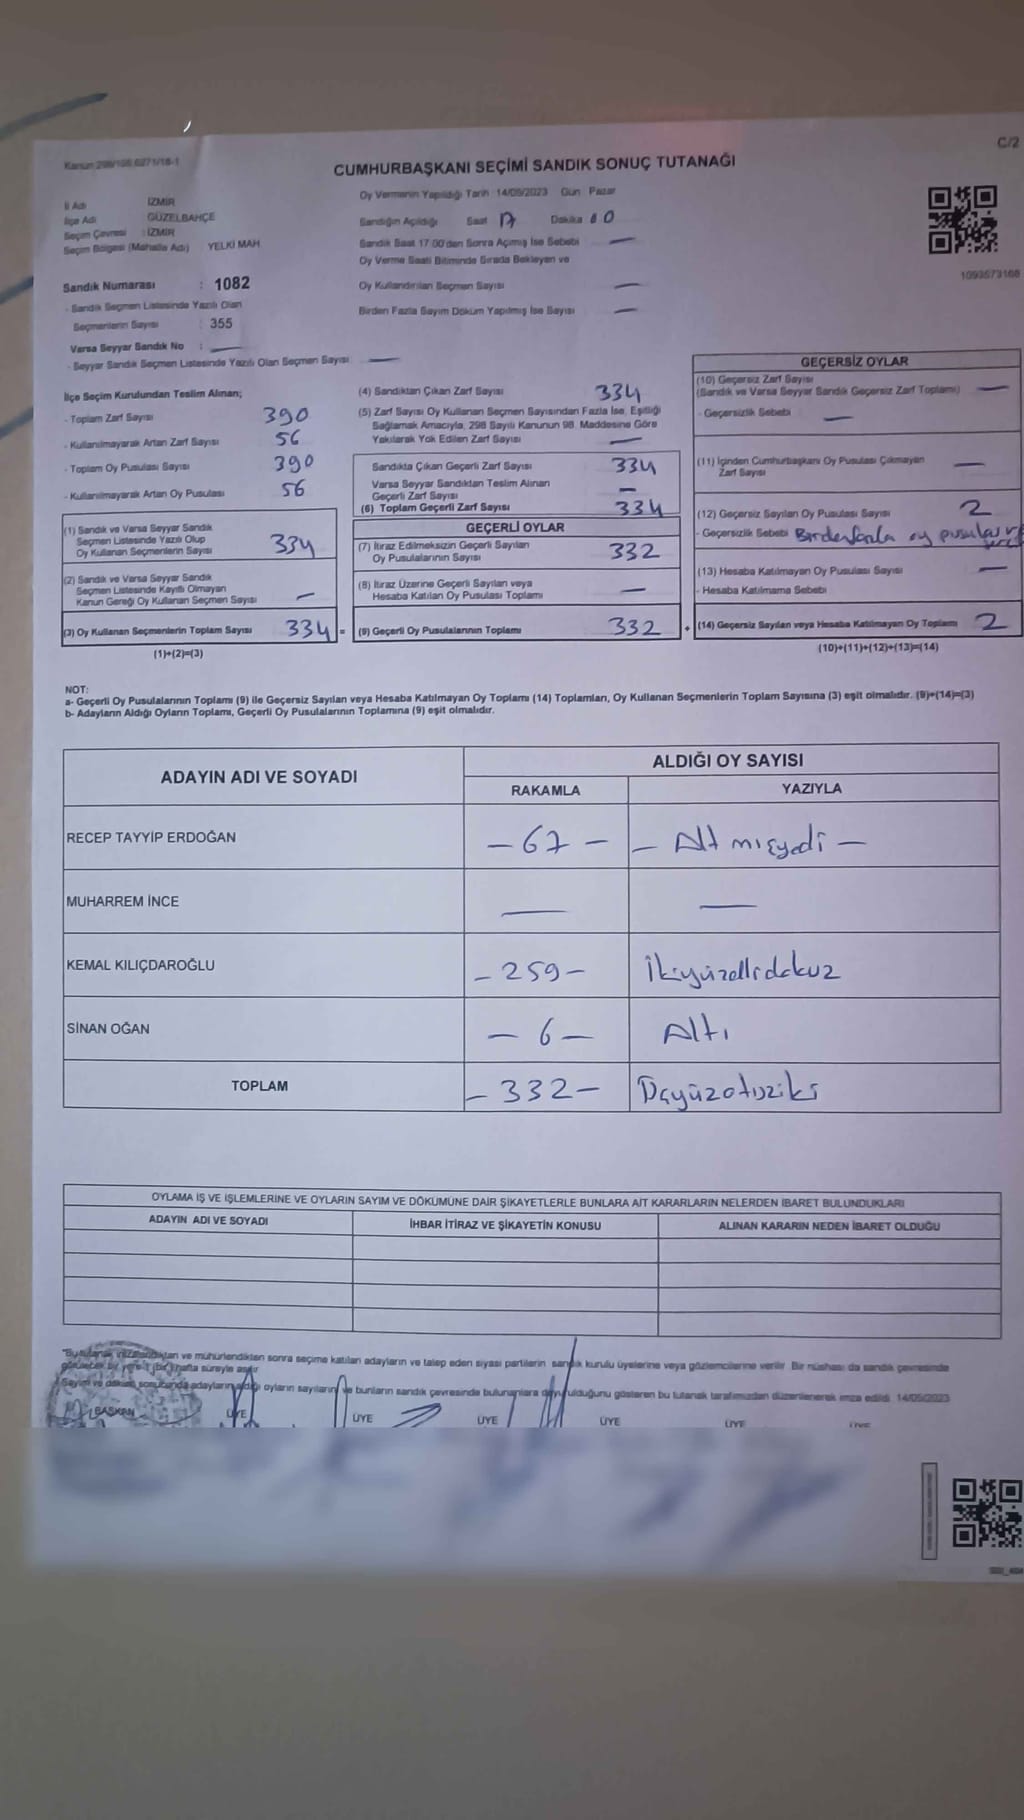 Kanun 298/105,6271/18-1
C/2
CUMHURBAŞKANI SEÇİMİ SANDIK SONUÇ TUTANAĞI
İl Adı : İZMİR
İlçe Adı : GÜZELBAHÇE
Seçim Çevresi : İZMİR
Seçim Bölgesi (Mahalle Adı) YELKİ MAH.
Oy Vermenin Yapıldığı Tarih : 14/05/2023 Gün : Pazar
Sandığın Açıldığı Saat 17 Dakika 00
Sandık Saat 17:00'den Sonra Açılmış İse Sebebi —
Oy Verme Saati Bitiminde Sırada Bekleyen ve
Oy Kullandırılan Seçmen Sayısı —
Birden Fazla Sayım Döküm Yapılmış İse Sayısı —
1093573168
Sandık Numarası : 1082
- Sandık Seçmen Listesinde Yazılı Olan
Seçmenlerin Sayısı : 355
Varsa Seyyar Sandık No : —
- Seyyar Sandık Seçmen Listesinde Yazılı Olan Seçmen Sayısı : —
İlçe Seçim Kurulundan Teslim Alınan;
- Toplam Zarf Sayısı 390
- Kullanılmayarak Artan Zarf Sayısı 56
- Toplam Oy Pusulası Sayısı 390
- Kullanılmayarak Artan Oy Pusulası 56
(1) Sandık ve Varsa Seyyar Sandık
Seçmen Listesinde Yazılı Olup
Oy Kullanan Seçmenlerin Sayısı 334
(2) Sandık ve Varsa Seyyar Sandık
Seçmen Listesinde Kayıtlı Olmayan
Kanun Gereği Oy Kullanan Seçmen Sayısı —
(3) Oy Kullanan Seçmenlerin Toplam Sayısı 334 =
(1)+(2)=(3)
(4) Sandıktan Çıkan Zarf Sayısı 334
(5) Zarf Sayısı Oy Kullanan Seçmen Sayısından Fazla İse, Eşitliği
Sağlamak Amacıyla, 298 Sayılı Kanunun 98. Maddesine Göre
Yakılarak Yok Edilen Zarf Sayısı —
Sandıkta Çıkan Geçerli Zarf Sayısı 334
Varsa Seyyar Sandıktan Teslim Alınan
Geçerli Zarf Sayısı —
(6) Toplam Geçerli Zarf Sayısı 334
GEÇERLİ OYLAR
(7) İtiraz Edilmeksizin Geçerli Sayılan
Oy Pusulalarının Sayısı 332
(8) İtiraz Üzerine Geçerli Sayılan veya
Hesaba Katılan Oy Pusulası Toplamı —
(9) Geçerli Oy Pusulalarının Toplamı 332 +
GEÇERSİZ OYLAR
(10) Geçersiz Zarf Sayısı
(Sandık ve Varsa Seyyar Sandık Geçersiz Zarf Toplamı) —
- Geçersizlik Sebebi —
(11) İçinden Cumhurbaşkanı Oy Pusulası Çıkmayan
Zarf Sayısı —
(12) Geçersiz Sayılan Oy Pusulası Sayısı 2
- Geçersizlik Sebebi Birdenfazla oy pusulası
(13) Hesaba Katılmayan Oy Pusulası Sayısı —
- Hesaba Katılmama Sebebi
(14) Geçersiz Sayılan veya Hesaba Katılmayan Oy Toplamı 2
(10)+(11)+(12)+(13)=(14)
NOT:
a- Geçerli Oy Pusulalarının Toplamı (9) ile Geçersiz Sayılan veya Hesaba Katılmayan Oy Toplamı (14) Toplamları, Oy Kullanan Seçmenlerin Toplam Sayısına (3) eşit olmalıdır. (9)+(14)=(3)
b- Adayların Aldığı Oyların Toplamı, Geçerli Oy Pusulalarının Toplamına (9) eşit olmalıdır.
ADAYIN ADI VE SOYADI ALDIĞI OY SAYISI
RAKAMLA YAZIYLA
RECEP TAYYİP ERDOĞAN — 67 — — Altmışyedi —
MUHARREM İNCE — —
KEMAL KILIÇDAROĞLU — 259 — İkiyüzellidokuz
SİNAN OĞAN — 6 — Altı
TOPLAM — 332 — Üçyüzotuziki
OYLAMA İŞ VE İŞLEMLERİNE VE OYLARIN SAYIM VE DÖKÜMÜNE DAİR ŞİKAYETLERLE BUNLARA AİT KARARLARIN NELERDEN İBARET BULUNDUKLARI
ADAYIN ADI VE SOYADI İHBAR İTİRAZ VE ŞİKAYETİN KONUSU ALINAN KARARIN NEDEN İBARET OLDUĞU
"Bu tutanak imzalandıktan ve mühürlendikten sonra seçime katılan adayların ve talep eden siyasi partilerin sandık kurulu üyelerine veya gözlemcilerine verilir. Bir nüshası da sandık çevresinde
görülecek bir yere 1 (bir) hafta süreyle asılır.
Sayım ve döküm sonucunda adayların aldığı oyların sayılarını ve bunların sandık çevresinde bulunanlara duyurulduğunu gösteren bu tutanak tarafımızdan düzenlenerek imza edildi. 14/05/2023
BAŞKAN ÜYE ÜYE ÜYE ÜYE ÜYE ÜYE